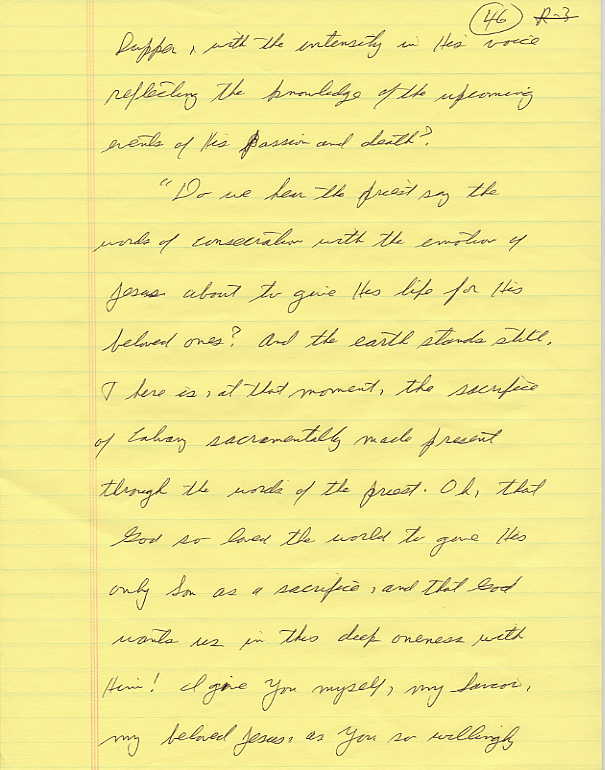 46 R-3
Supper, with the intensity in His voice
reflecting the knowledge of the upcoming
events of His Passion and death?
"Do we hear the priest say the
words of consecration with the emotion of
Jesus about to give His life for His
beloved ones? And the earth stands still.
There is, at that moment, the sacrifice
of Calvary sacramentally made present
through the words of the priest. Oh, that
God so loved the world to give His
only Son as a sacrifice, and that God
wants us in this deep oneness with
Him! I give You myself, my Savior,
my beloved Jesus, as You so willingly